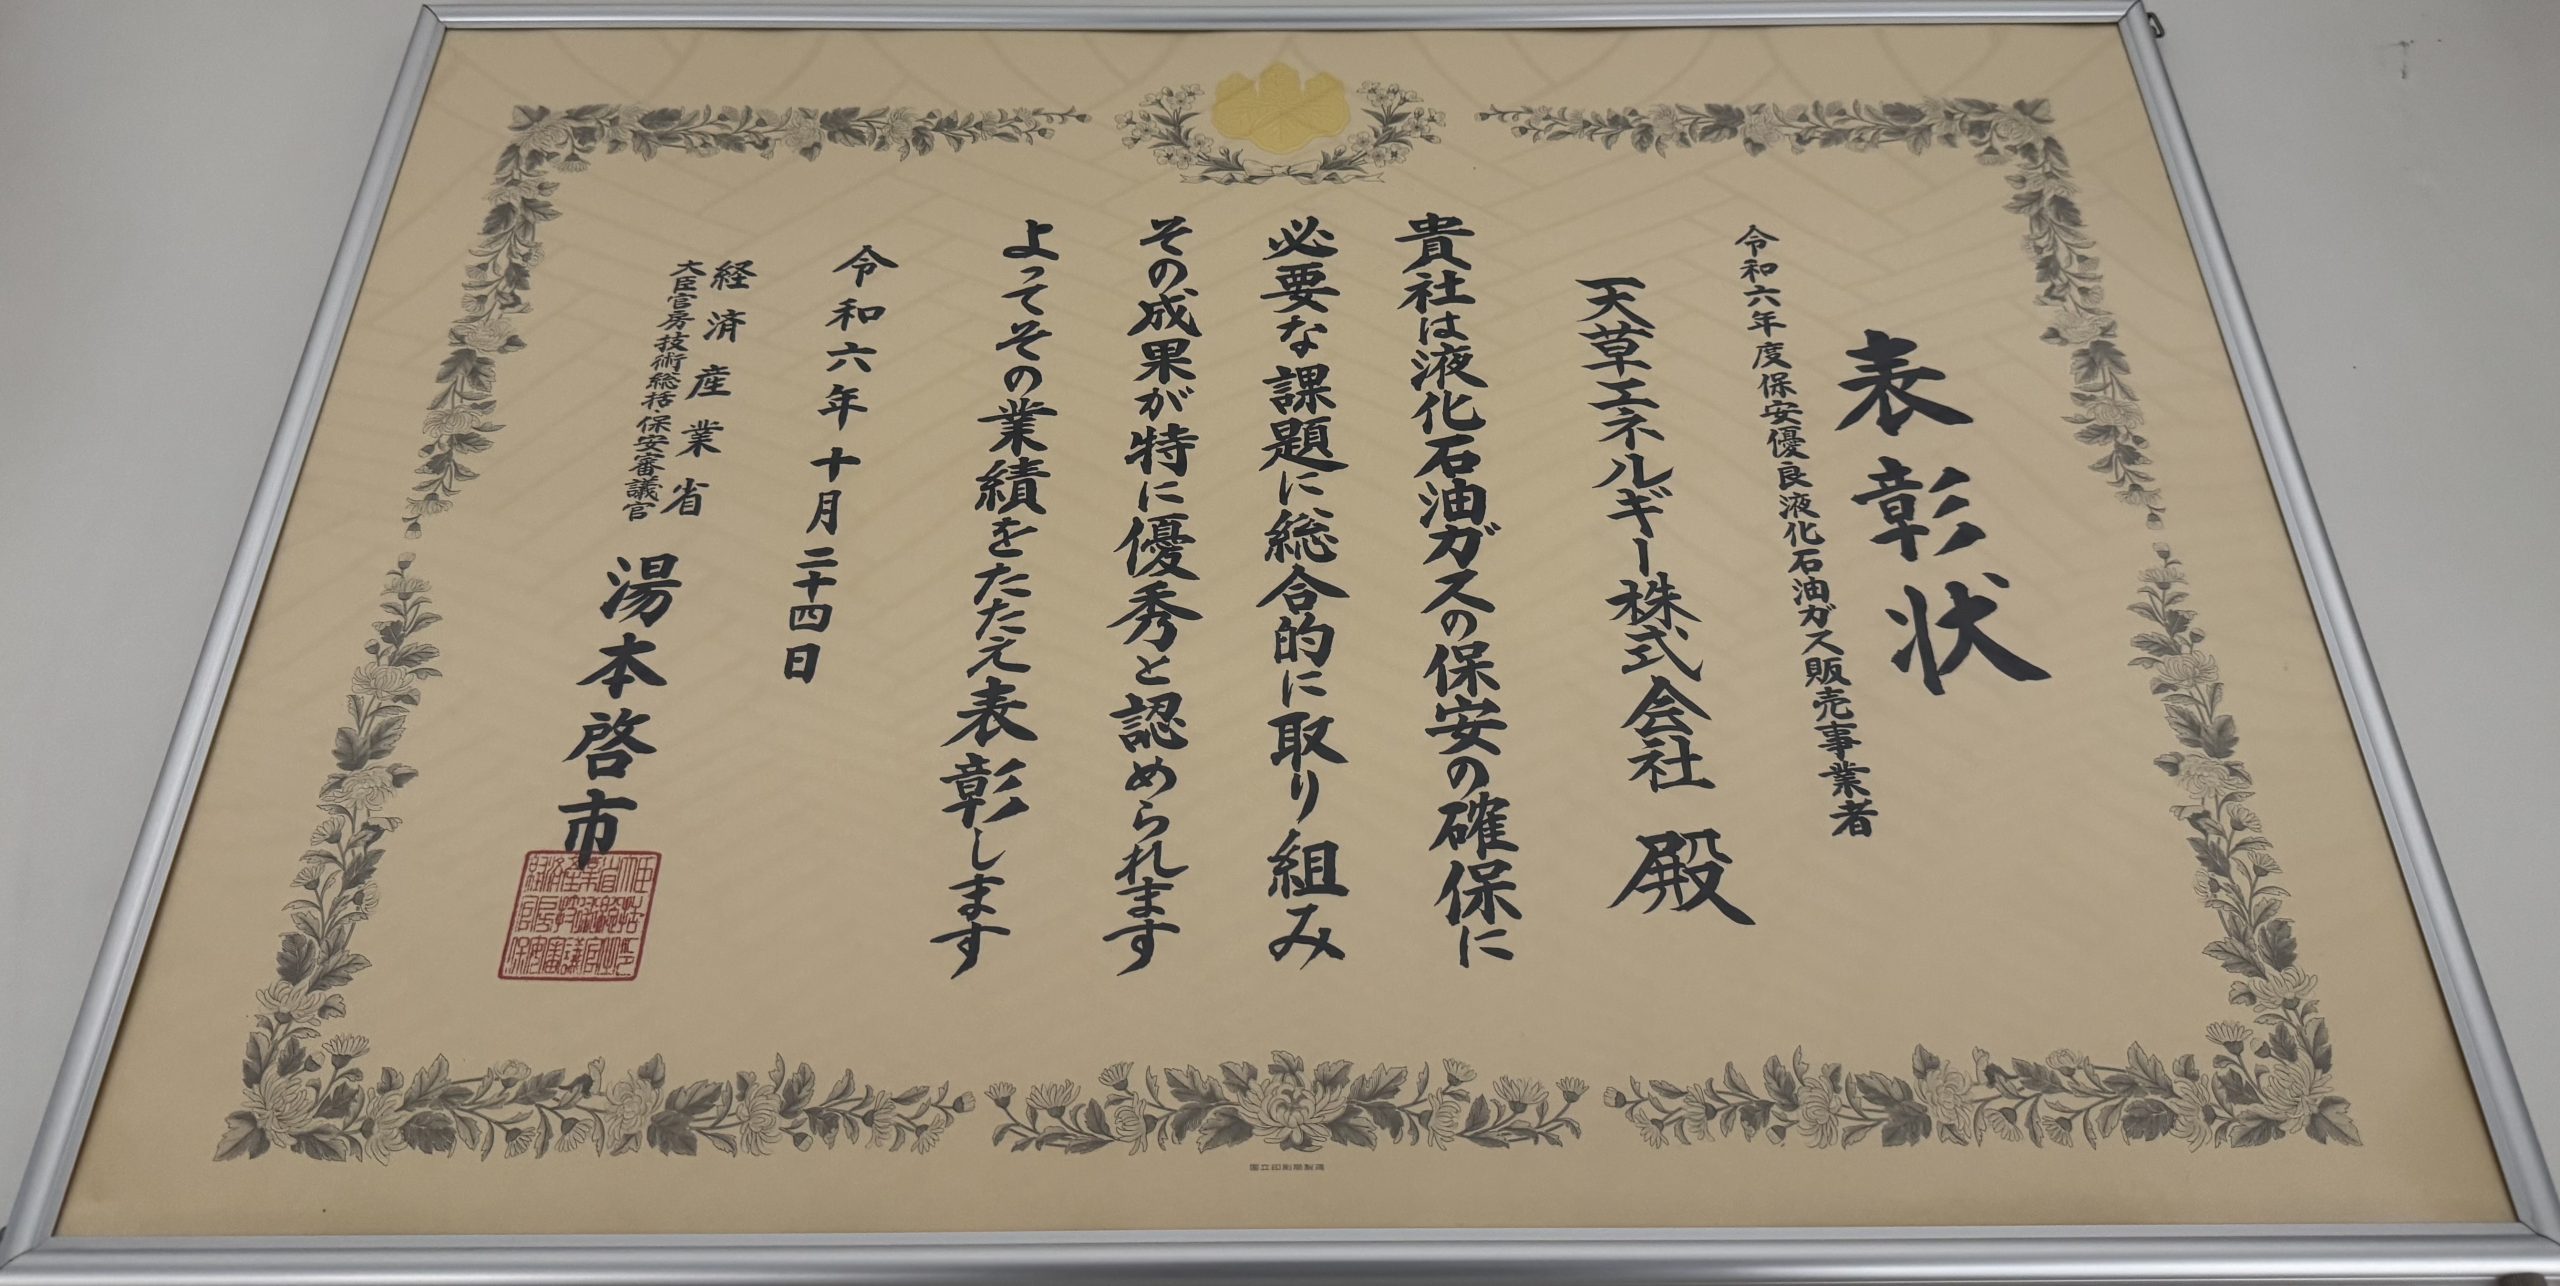 表彰状
令和六年度保安優良液化石油ガス販売事業者
天草エネルギー株式会社 殿
貴社は液化石油ガスの保安の確保に
必要な課題に総合的に取り組み
その成果が特に優秀と認められます
よってその業績をたたえ表彰します
令和六年十月二十四日
経済産業省
大臣官房技術総括・保安審議官
湯本啓市
国立印刷局製造